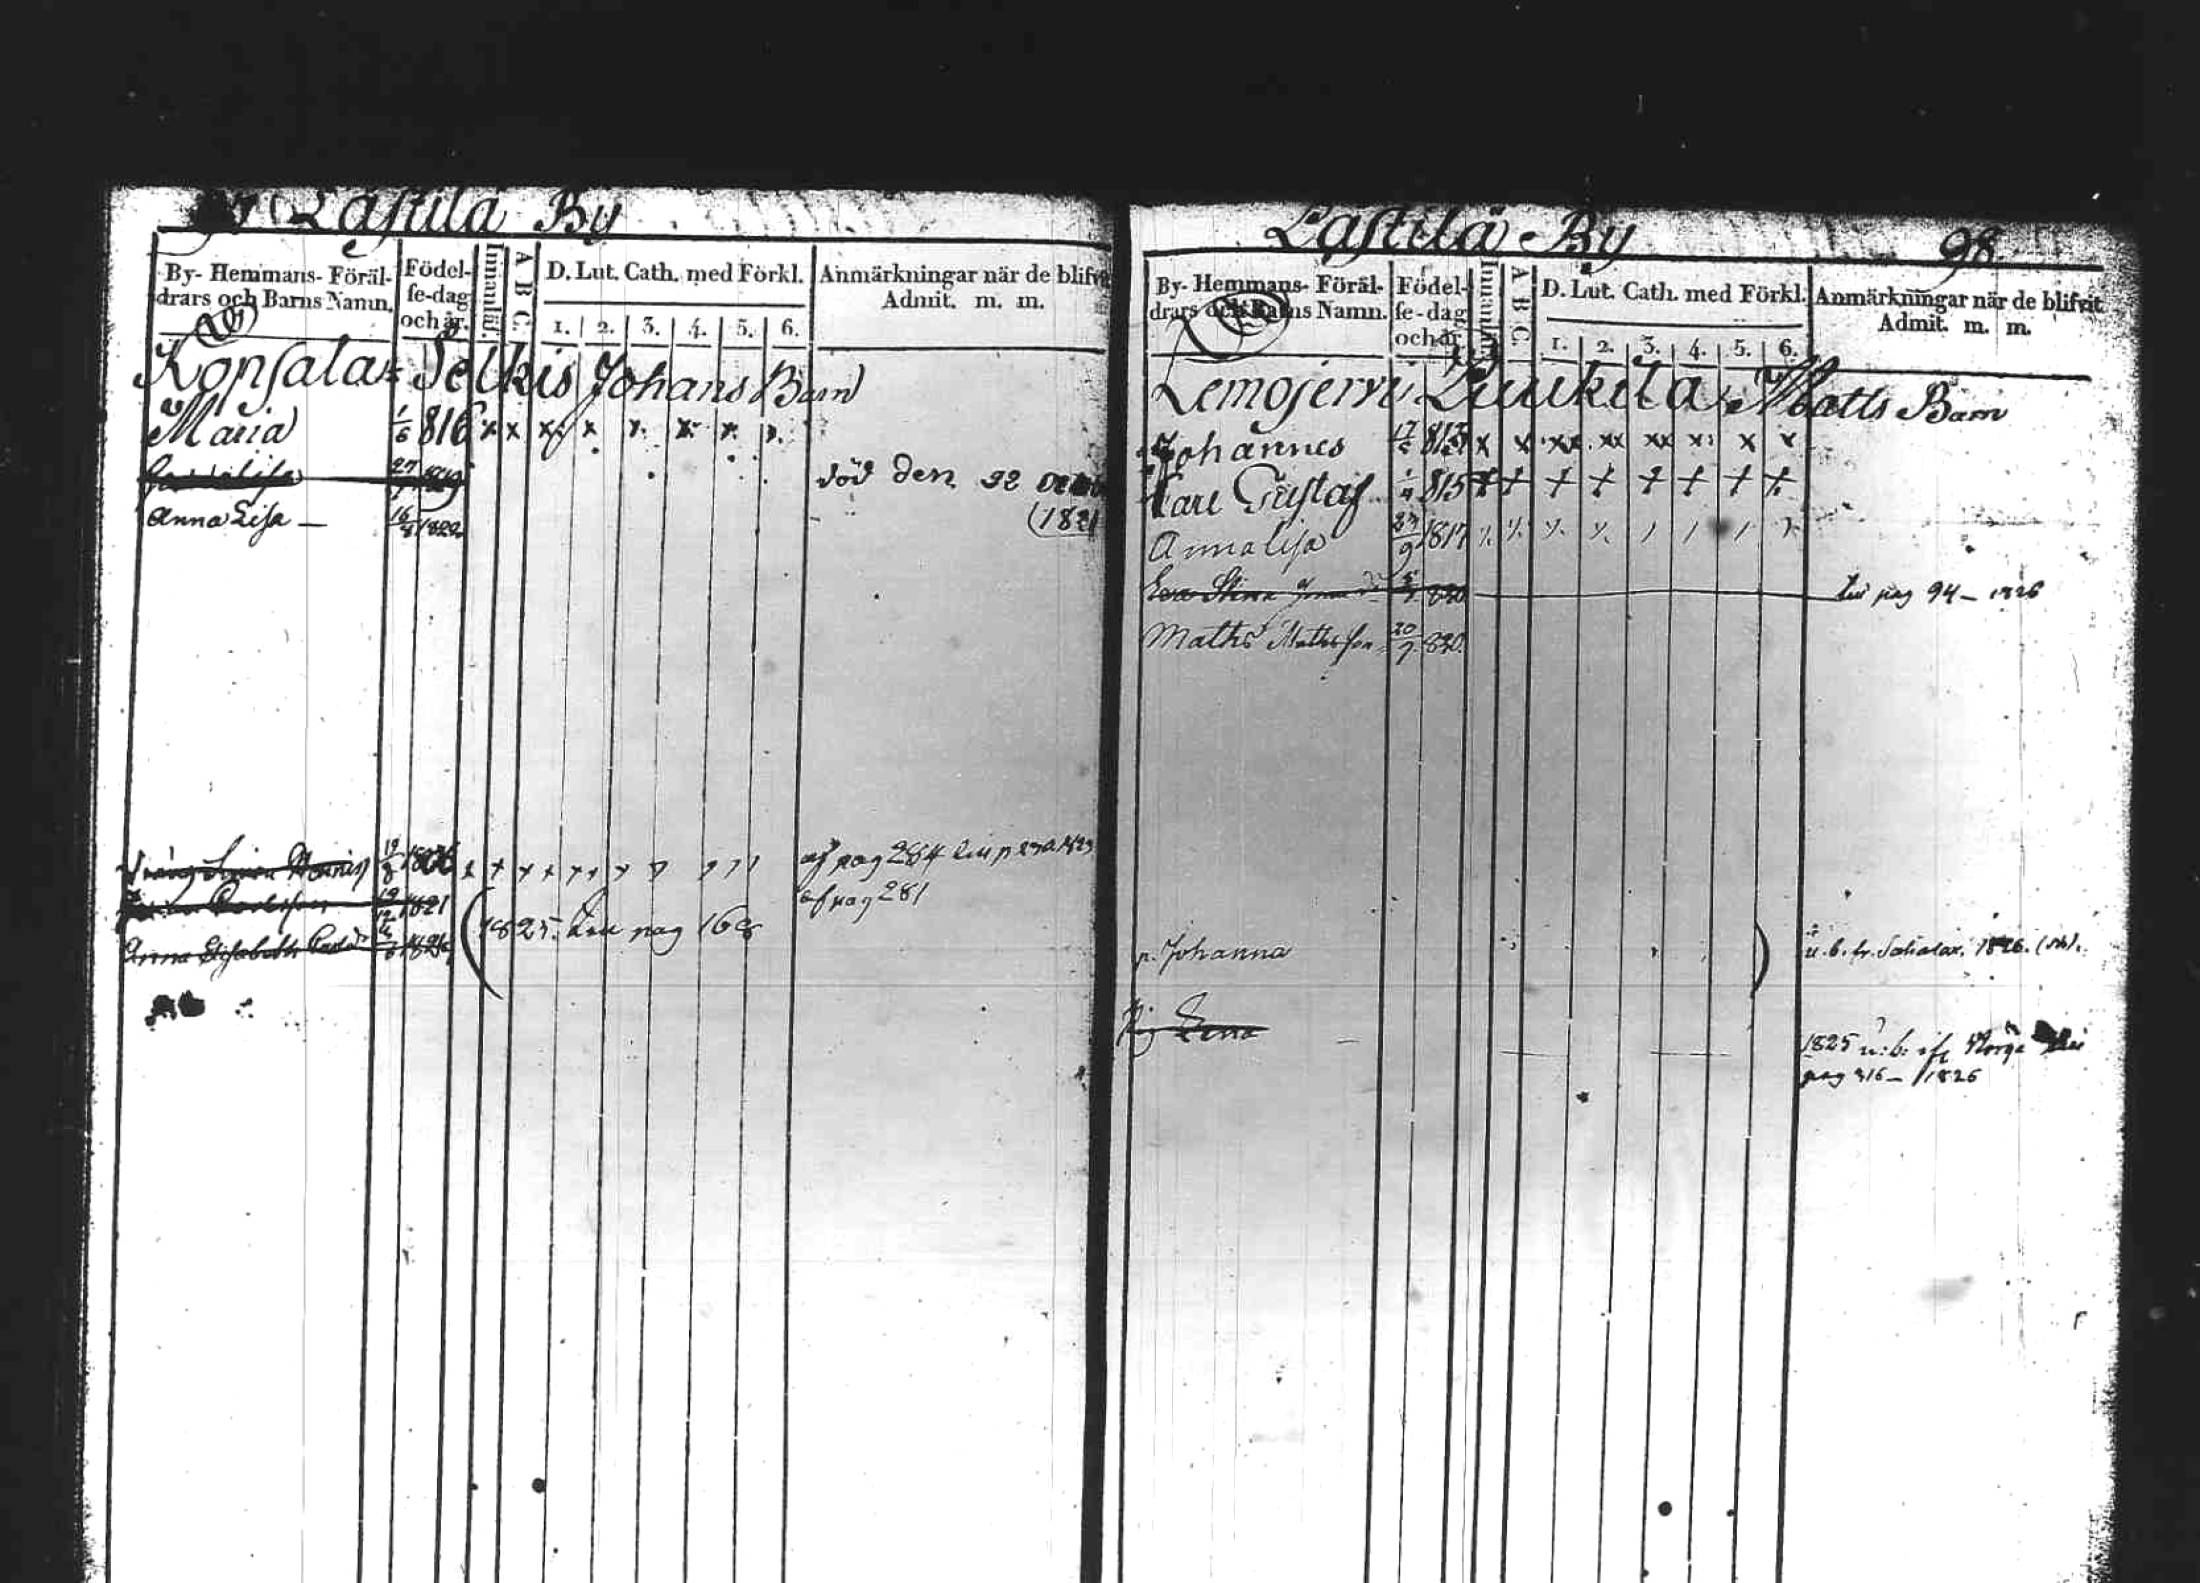 Lastila By
By- Hemmans- Föräl-
drars och Barns Namn.
Födel-
se-dag
och år.
Innanläs.
A B C.
D. Lut. Cath. med Förkl.
1. 2. 3. 4. 5. 6.
Anmärkningar när de blifvit
Admit. m. m.
Konsala Selkis Johans Barn
Maria 1/6 816 x x x x x x x x
27 1819 död den 22
(1821
Anna Lisa — 16/4 1822
af pag 284
1821 af pag 281
Anna Elisabeth
(1825. pag 168
Lastila By 98.
By- Hemmans- Föräl-
drars och Barns Namn.
Födel-
se-dag
och år
Innanläs.
A B C.
D. Lut. Cath. med Förkl.
1. 2. 3. 4. 5. 6.
Anmärkningar när de blifvit
Admit. m. m.
Lemojervi Luukila Matts Barn
Johannes 17 813 x x xx xx xx x x x
Carl Gustaf 815 x x x x x x x x
Anna Lisa 23/9 1817
Eva Stina 820 pag 94 – 1826
Maths Mathsson 20/7 820.
p. Johanna ) u. b. fr. 1826.
Pig Lena
1825 u: b:
pag 316 – 1826